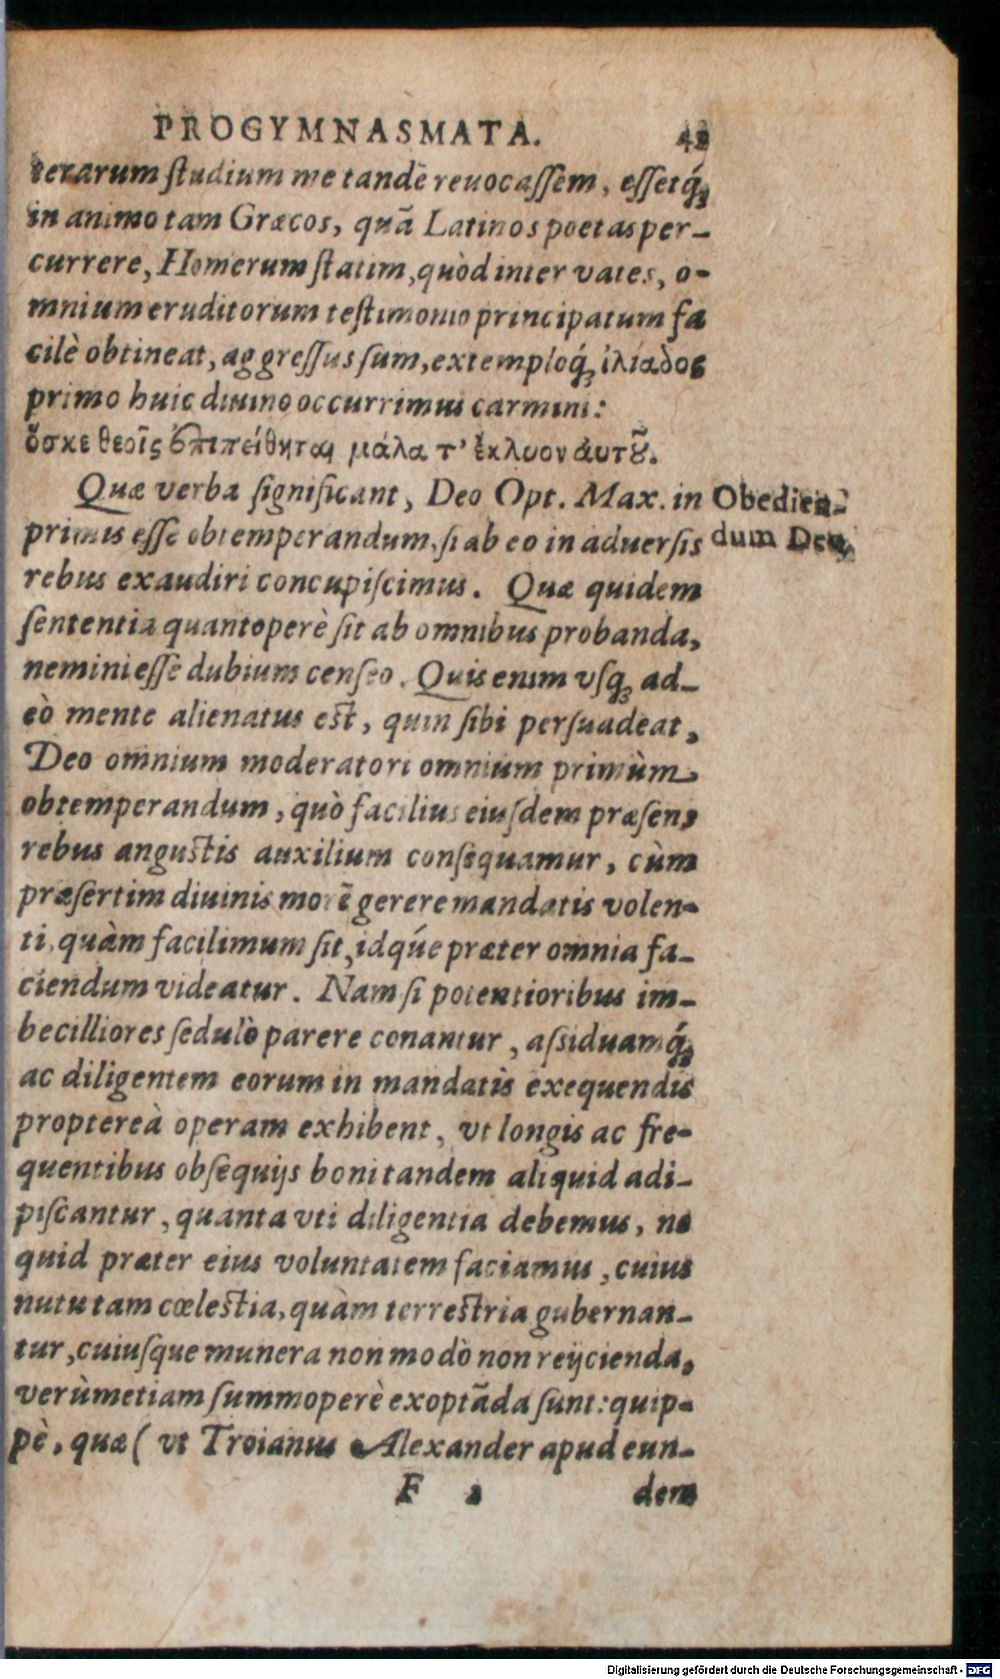 PROGYMNASMATA. 42
terarum ſtudium me tandē reuocaſſem, eſſetq́;
in animo tam Græcos, quā Latinos poetas per-
currere, Homerum ſtatim, quòd inter vates, o-
mnium eruditorum teſtimonio principatum fa
cilè obtineat, aggreſſus ſum, extemploq́; ἰλίαδος
primo huic diuino occurrimus carmini:
ὅσκε θεοῖς ἐπιπείθηται μάλα τ' ἔκλυον ἀυτοῦ.
Quæ verba ſignificant, Deo Opt. Max. in
primis eſſe obtemperandum, ſi ab eo in aduerſis
rebus exaudiri concupiſcimus. Quæ quidem
ſententia quantoperè ſit ab omnibus probanda,
nemini eſſe dubium cenſeo. Quis enim vſq; ad-
eò mente alienatus eſt, quin ſibi perſuadeat,
Deo omnium moderatori omnium primùm
obtemperandum, quò facilius eiuſdem præſens
rebus anguſtis auxilium conſequamur, cùm
præſertim diuinis morē gerere mandatis volen-
ti, quàm facilimum ſit, idq́ue præter omnia fa-
ciendum videatur. Nam ſi potentioribus im-
becilliores ſedulò parere conantur, aſsiduamq́;
ac diligentem eorum in mandatis exequendis
proptereà operam exhibent, vt longis ac fre-
quentibus obſequijs boni tandem aliquid adi-
piſcantur, quanta vti diligentia debemus, ne
quid præter eius voluntatem faciamus, cuius
nutu tam cœleſtia, quàm terreſtria gubernan-
tur, cuiuſque munera non modò non reijcienda,
verùmetiam ſummoperè exoptāda ſunt: quip-
pè, quæ ( vt Troianus Alexander apud eun-
F 2 dem
Obedien-
dum Deo.
Digitalisierung gefördert durch die Deutsche Forschungsgemeinschaft - DFG